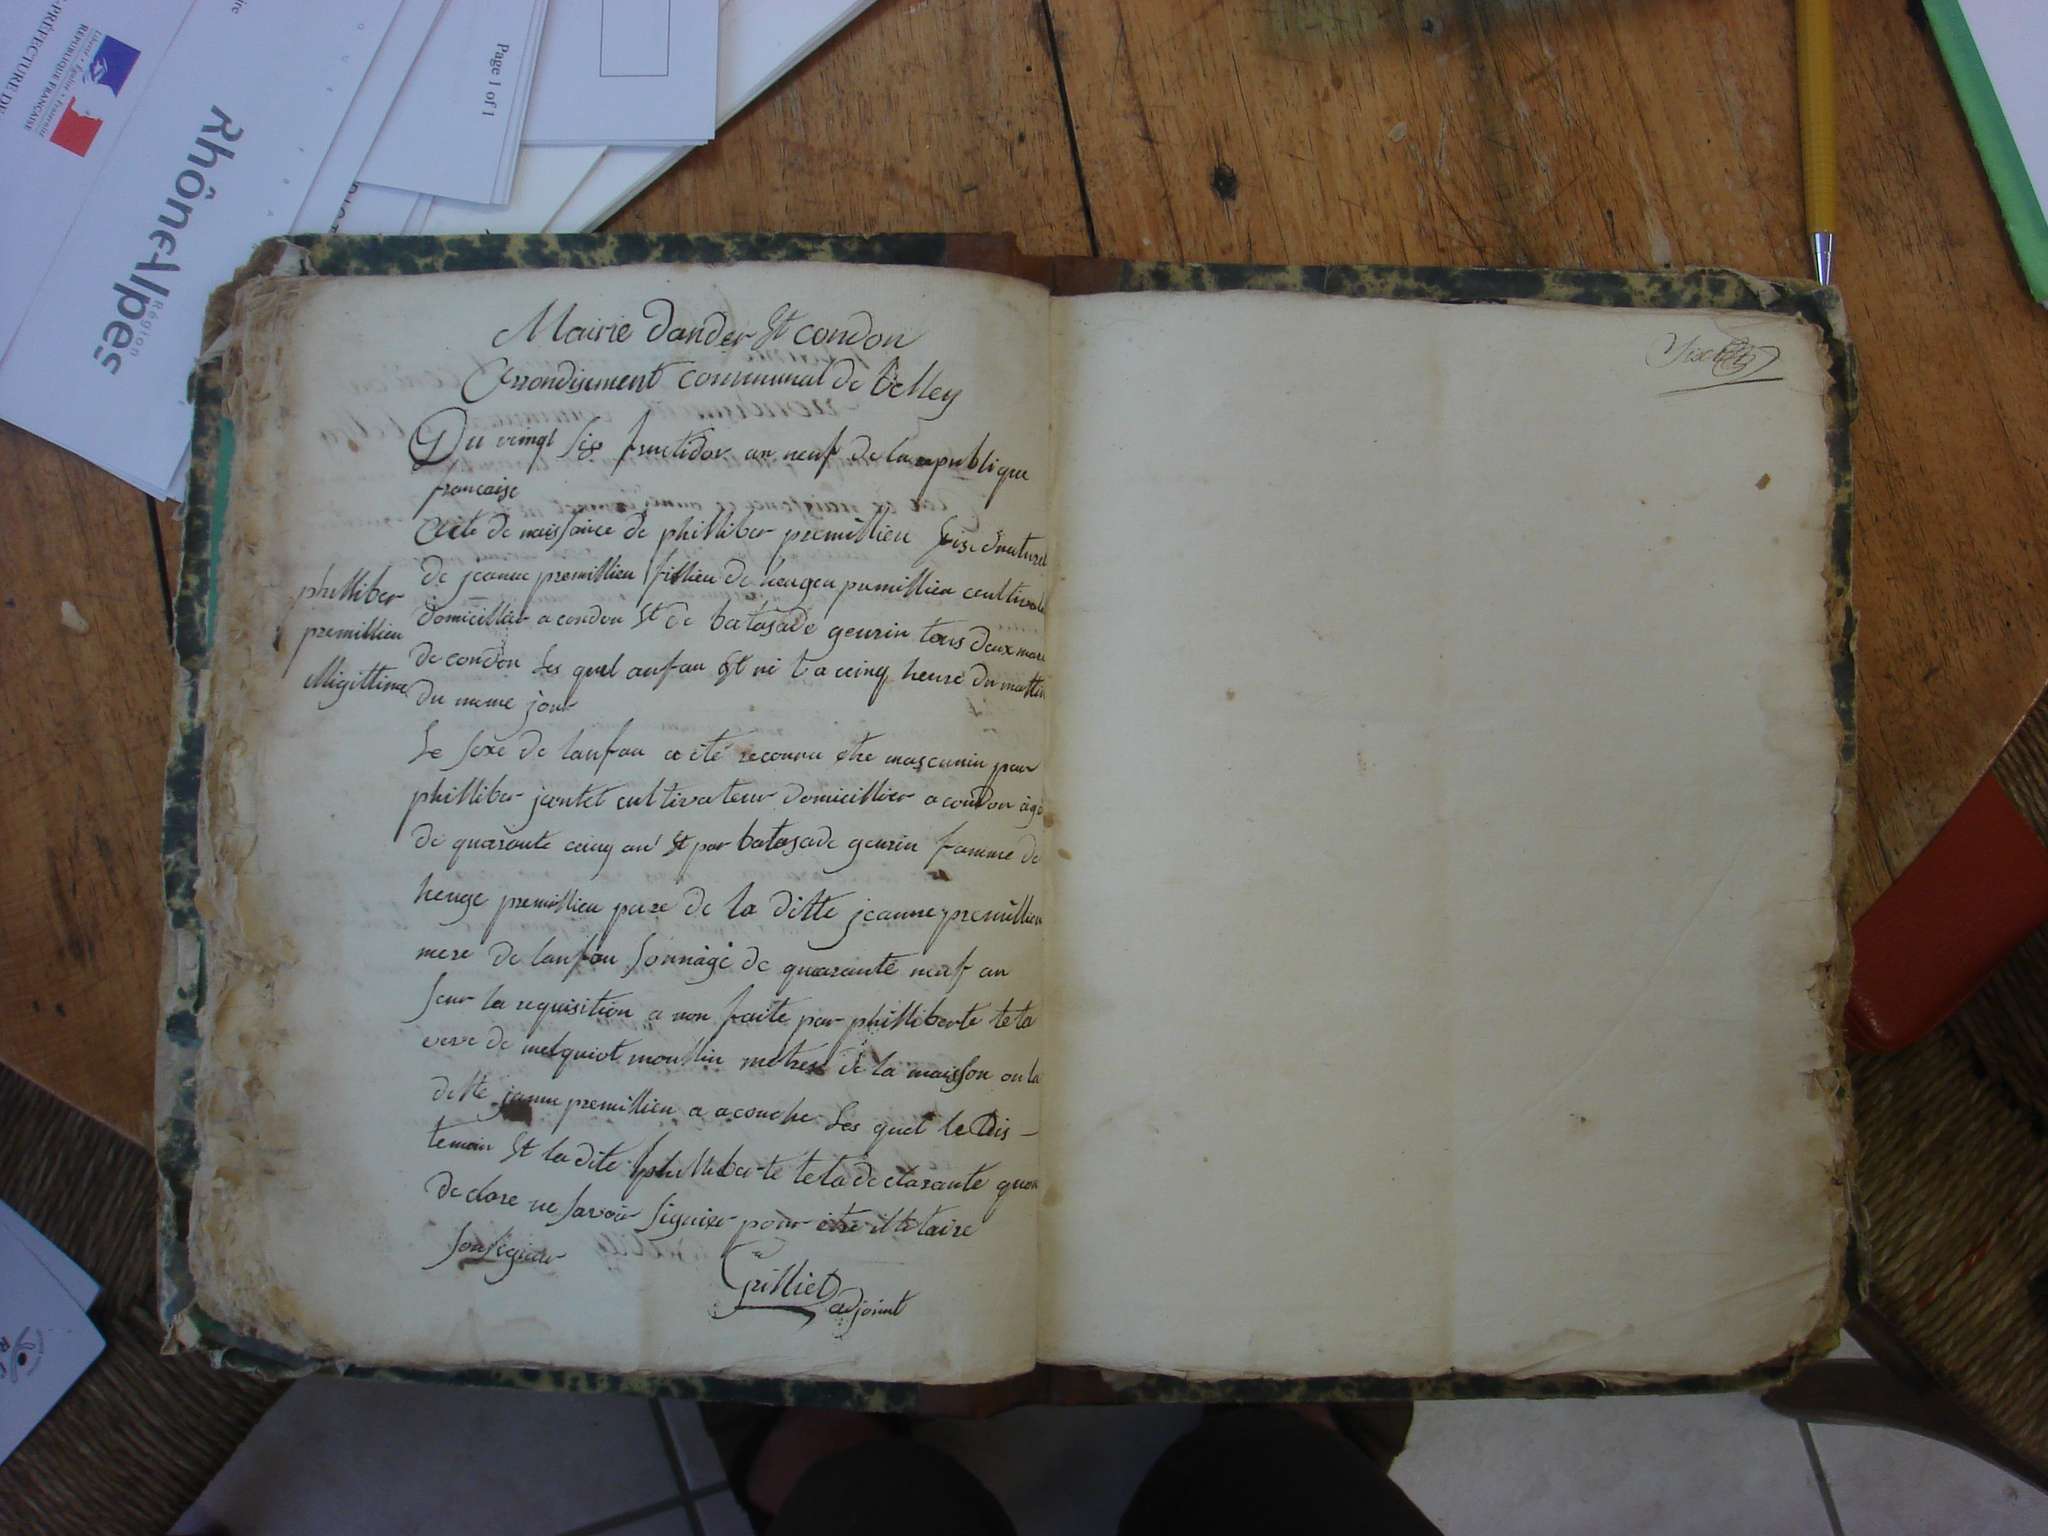 PRÉFECTURE DE
Liberté • Égalité • Fraternité
RÉPUBLIQUE FRANÇAISE
Rhône-Alpes
Région
Page 1 of 1
Mairie dander St condon
Arrondisement communal de belley
Du veingt six fructidor an neuf de la republique
francaise
Acte de naissance de philliber premillien naturel
de jeanne premillien fillieu de heugen premillien
domicillier a condon et de batasade geurin tous deux
de condon les quel anfan et ni t a ceinq heure du mattin
du meme jour
philliber
premillien
illigittime
Le sexe de lanfan a été reconnu etre mascunin par
philliber jantet cultivateur domicillier a condon âgé
de quarante ceinq an et par batasade geurin famme de
heuge premillien pere de la ditte jeanne premillien
mere de lanfan sonnàgé de quarante neuf an
seur la requisition a non faite par philliberte teta
veve de melquiot moullin metres de la maison ou la
ditte janne premillien a acouche Les quel le dis-
temoin et la dite philliberte teta declarante quon
declare ne savoir signier pour etre illetaire
sousigner
Grilliet
adjoint